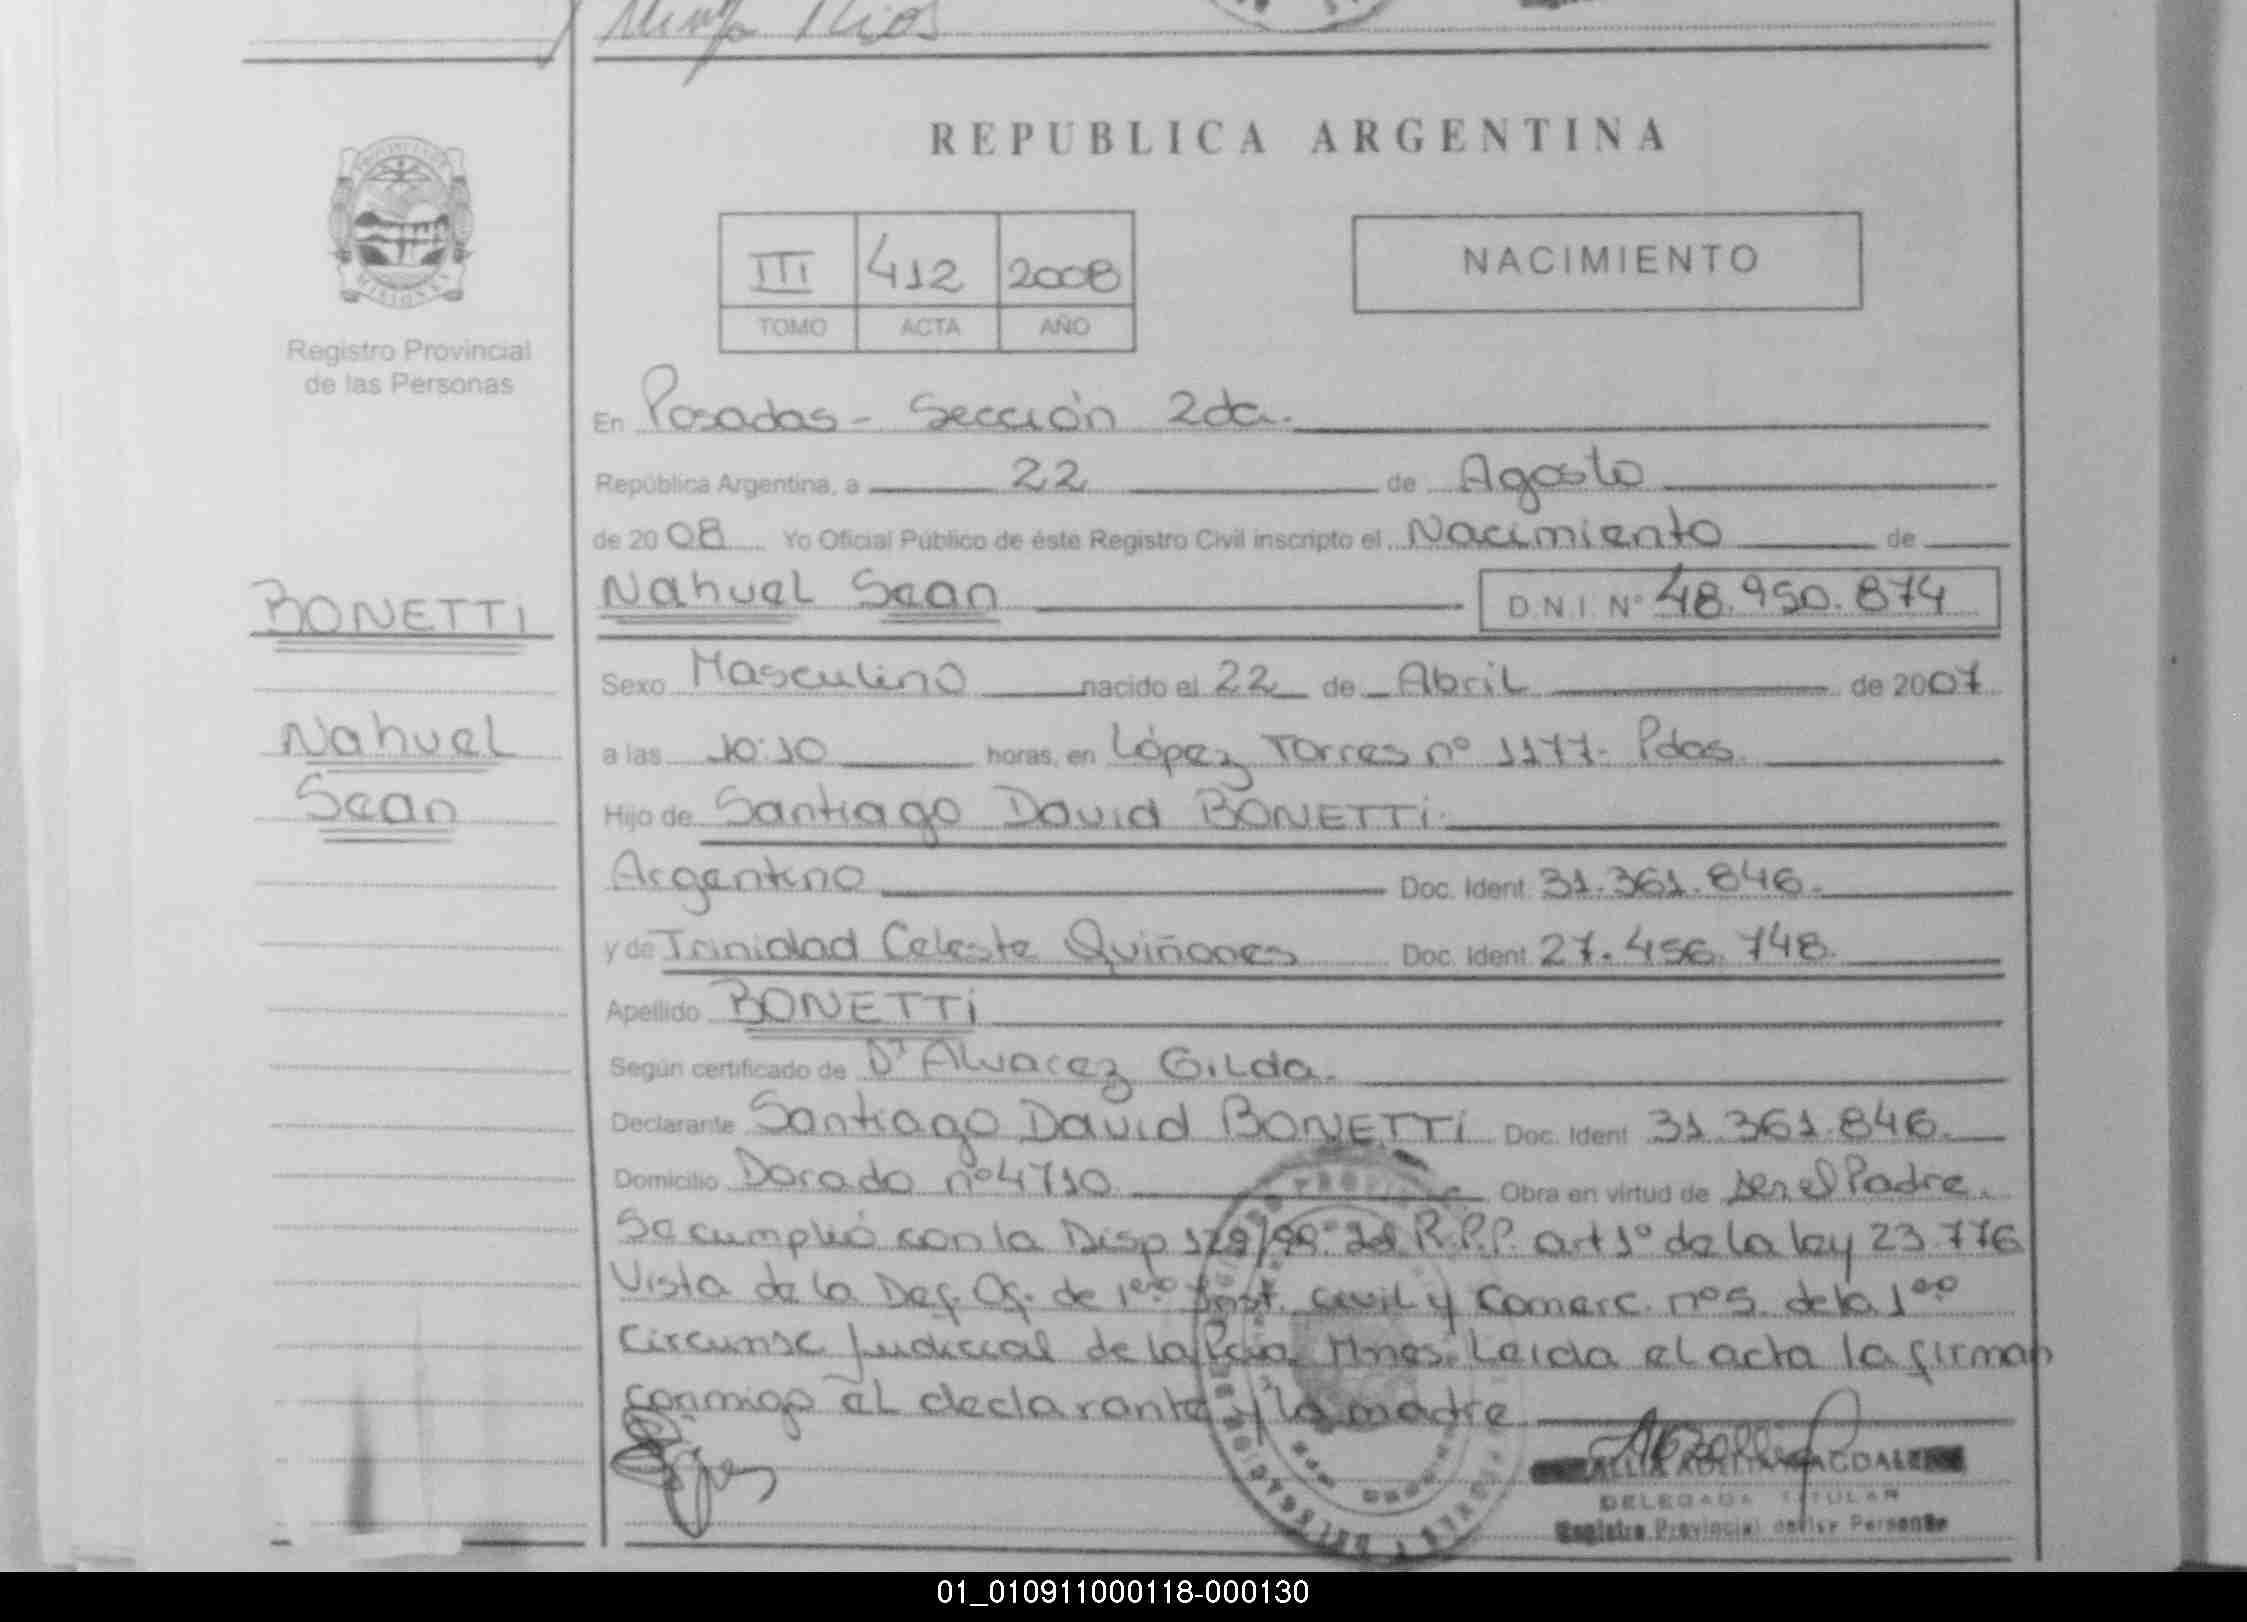 REPUBLICA ARGENTINA
III 412 2008
TOMO ACTA AÑO
NACIMIENTO
MISIONES
Registro Provincial
de las Personas
BONETTi
Nahuel
Sean
En Posadas - Sección 2da.
República Argentina, a 22 de Agosto
de 2008 Yo Oficial Público de éste Registro Civil inscripto el Nacimiento de
Nahuel Sean D.N.I. Nº 48.950.874
Sexo Masculino nacido el 22 de Abril de 2007
a las 10:10 horas, en López Torres nº 1177- Pdas.
Hijo de Santiago David BONETTi.
Argentino Doc. Ident. 31.361.846.
y de Trinidad Celeste Quiñones Doc. Ident. 27.456.748.
Apellido BONETTi
Según certificado de Alvarez Gilda.
Declarante Santiago David BONETTi Doc. Ident. 31.361.846.
Domicilio Dorado nº 4710 Obra en virtud de ser el Padre.
Se cumplió con la Disp R.P.P. art 1º de la ley 23.776
Vista de la Def. Of. de 1era Inst. Civil y Comerc. nº 5. de la 1era
Circunsc Judicial de la Pcia. Mnes. Leida el acta la firman
conmigo el declarante y la madre
DELEGADA TITULAR
Registro Provincial
01_010911000118-000130